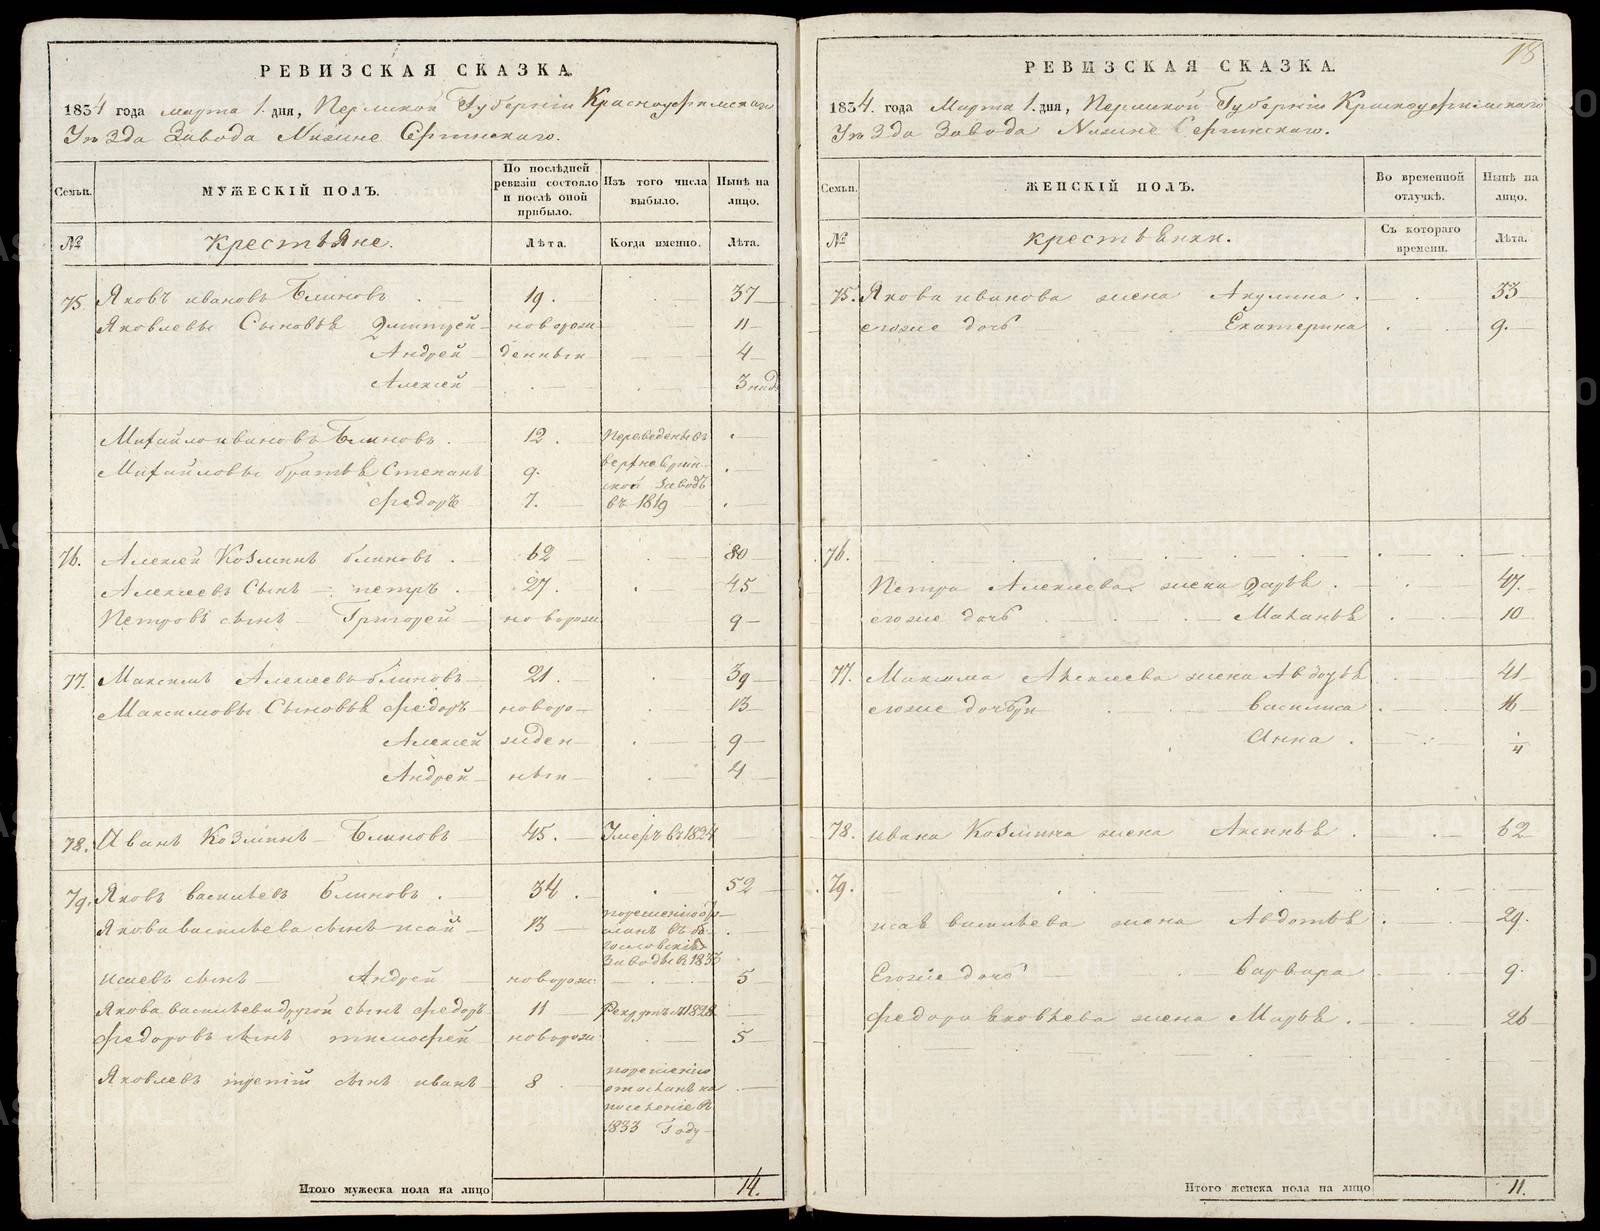 РЕВИЗСКАЯ СКАЗКА.
1834 года марта 1. дня, Пермской Губернiи Красноуфимскаго
Уѣзда Завода Нижне Сергинскаго.
Семьи.
МУЖЕСКІЙ ПОЛЪ.
По послѣдней ревизіи состояло и послѣ оной прибыло.
Изъ того числа выбыло.
Нынѣ на лицо.
№
Крестьяне.
Лѣта.
Когда именно.
Лѣта.
75 Яковъ ивановъ Блиновъ 19. 37
Яковлевы Сыновья Дмитрей новорож 11
Андрей денныи 4
Алексей 3 нид
Михайло ивановъ Блиновъ. 12. Переведены въ
Михайловы братья Степанъ 9. верхнесергин
ской заводъ
федоръ 7. въ 1819
76. Алексей Козминъ блиновъ. 62 80
Алексеевъ Сынъ петръ. 27. 45
Петровъ сынъ Григорей новорож 9
77. Максимъ Алексеевъ блиновъ 21. 39
Максимовы Сыновья федоръ новоро 13
Алексей жден 9
Андрей ныи 4
78. Иванъ Козминъ Блиновъ 45. Умеръ въ 1824
79. Яковъ васильевъ Блиновъ. 34. 52
Якова васильева сынъ исай 13 порешению
въ бо
гословскiя
заводы въ 1833
исаевъ сынъ Андрей новорож 5
Якова васильева другой сынъ федоръ 11 Рекрутъ 1828
федоровъ сынъ тимофей новорож 5
Яковлевъ третiй сынъ иванъ 8 порешению
отосланъ на
поселение въ
1833 Году
Итого мужеска пола на лицо 14.
18
РЕВИЗСКАЯ СКАЗКА.
1834. года Марта 1. дня, Пермской Губернiи Красноуфимскаго
Уѣзда Завода Нижне Сергинскаго.
Семьи.
ЖЕНСКІЙ ПОЛЪ.
Во временной отлучкѣ.
Нынѣ на лицо.
№
крестьянки.
Съ котораго времени.
Лѣта.
75. Якова иванова жена Акулина. 33
егоже дочь Екатерина 9.
76.
Петра Алексеева жена Дарья. 47.
егоже дочь Маланья 10
77. Максима Алексеева жена Авдотья 41
егоже дочери василиса 16
Анна. 4
78. ивана Козмина жена Аксинья. 62
79.
исая васильева жена Авдотья 29.
Егоже дочь варвара 9.
федора яковлева жена Марья. 26
Итого женска пола на лицо 11.
METRIKI.GASO-URAL.RU